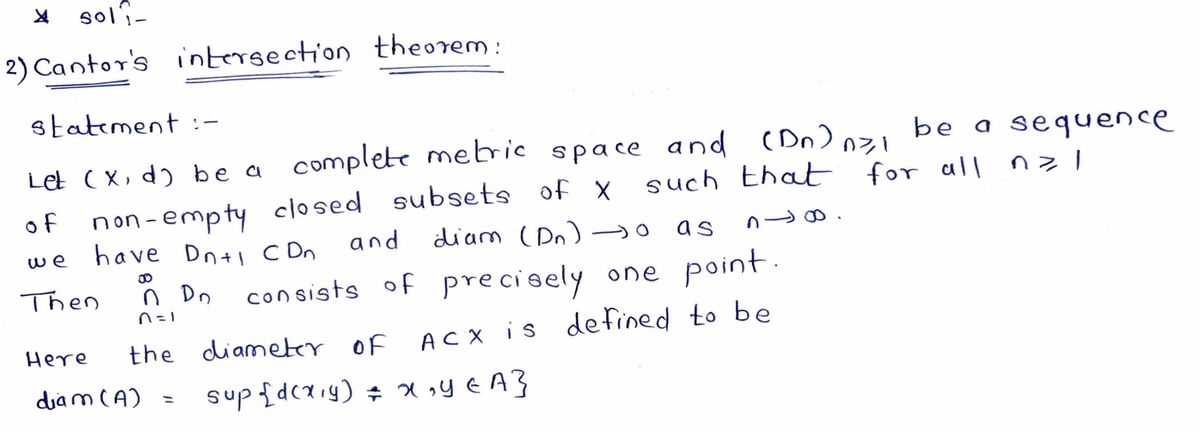 * soln:-
2) Cantor's intersection theorem:
statement :-
Let (X, d) be a complete metric space and (Dn) n≥1 be a sequence
of non-empty closed subsets of X such that for all n ≥ 1
we have Dn+1 ⊂ Dn and diam (Dn) → 0 as n → ∞.
Then ∞∩n=1 Dn consists of precisely one point.
Here the diameter of A ⊂ X is defined to be
diam (A) = sup {d(x,y) ÷ x, y ∈ A}